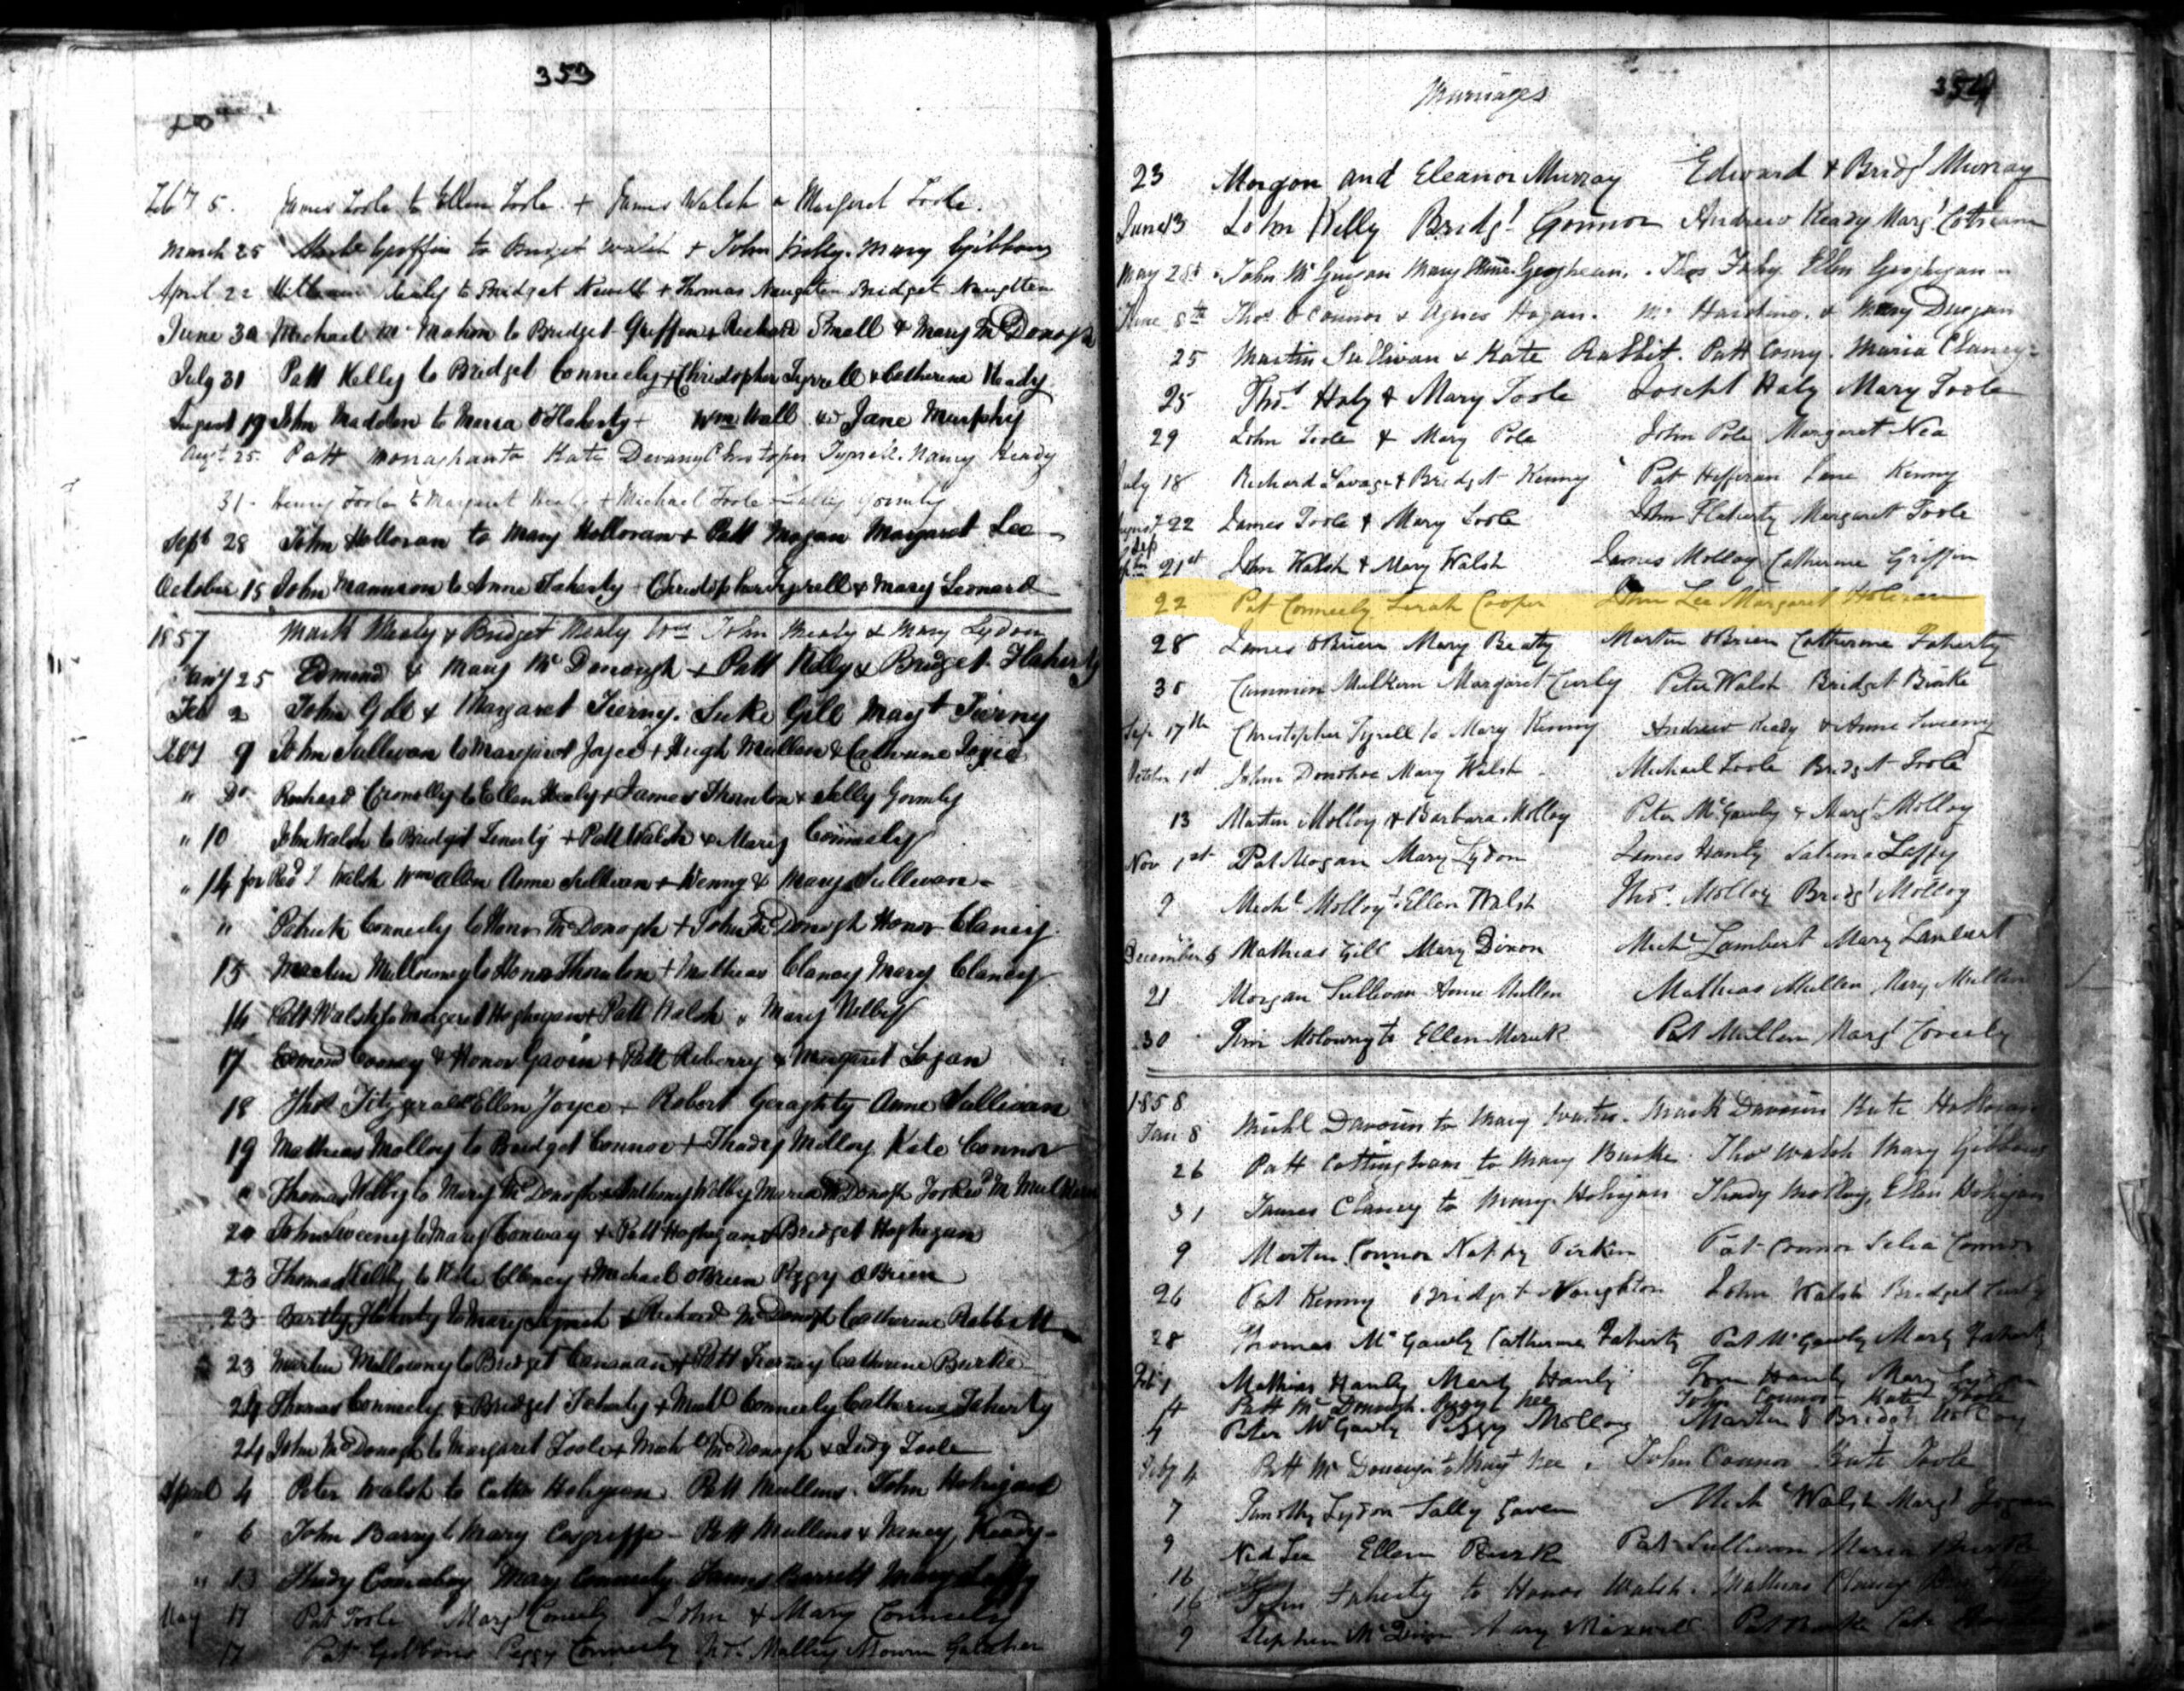 353
Feby 5. James Toole to Ellen Toole + James Walsh & Margaret Toole.
March 25 Griffin to Bridget Walsh + John Mary Gibbons
April 22 Healy to Bridget Newell + Thomas Naughten Bridget Naughten
June 30 Michael Mc Mahon to Bridget Griffin + Richard Small & Mary McDonogh
July 31 Patt Kelly to Bridget Conneely + Christopher Tyrrell & Catherine Keady
August 19 John Madden to Maria O'Flaherty + Wm Wall & Jane Murphy
Augt 25. Patt Monaghan to Kate Devany Christopher Tyrrell. Nancy Keady
31. Henry Toole to Margaret + Michael Toole Gormly
Sept 28 John Holloran to Mary Holloran + Patt Mogan Margaret Lee
October 15 John to Anne Faherty + Christopher Tyrrell & Mary Leonard
1857 Mark Mealy & Bridget Mealy John Mealy & Mary Lydon
Jany 25 Edmond & Mary Mc Donough + Patt Kelly & Bridget Flaherty
Feb 2 John Gill & Margaret Tierny. Luke Gill Mayt Tierny
Feby 9 John Sullivan to Margaret Joyce + Hugh Mullen & Catherine Joyce
" Do Richard Cronolly to Ellen Healy + James Thornton & Sally Gormly
" 10 John Walsh to Bridget + Patt Walsh & Mary Conneely
" 14 for Revd Walsh Wm Allen Anne Sullivan + Kenny & Mary Sullivan
" Patrick Conneely to Honor McDonogh + John McDonogh Honor Clancy
15 Martin Mullowney to Honor Thornton + Mathias Clancy Mary Clancy
16 Patt Walsh to Margaret + Patt Walsh & Mary
17 Edmond & Honor Gavin + Patt & Margaret Logan
18 Thos Fitzgerald Ellen Joyce + Robert Geraghty Anne Sullivan
19 Mathias Molloy to Bridget Connor + Thady Molloy Kate Connor
" Thomas Welby to Mary McDonogh + Anthony Welby Maria McDonogh
20 John Sweeney to Mary Conway + Patt & Bridget
23 Thomas to Clancy + Michael OBrien Peggy OBrien
23 Bartly Flaherty to Mary + Richard McDonogh Catherine Rabbitt
23 Martin Mullowney to Bridget + Patt Catherine Burke
24 Thomas Conneely & Bridget Faherty + Michl Conneely Catherine Faherty
24 John McDonogh to Margaret Toole + Michl McDonogh & Judy Toole
April 4 Peter Walsh to Hohigan Patt Mullins. John
" 6 John Barry to Mary Cosgriffe - Patt Mullins & Nancy Keady
" 13 Thady Mary Conneely James Barrett Mary
May 17 Pat Toole Margt John & Mary Conneely
17 Pat Gibbons Peggy Conneely
Marriages 354
23 Morgan and Eleanor Murray Edward & Bridgt Murray
June 13 John Kelly Bridgt Connor Andrew Keady Margt
May 28th John Mc Mary Anne Geoghean. Thos Fahy. Ellen Geoghegan
June 8th Thos O'Connor & Agnes Hogan. Mr Harding. & Mary Duggan
25 Martin Sullivan & Kate Rabbit. Patt Maria Clancy
25 Thos Haly & Mary Toole Joseph Haly Mary Toole
29 John Toole & Mary Pole John Pole Margaret Nea
July 18 Richard Savage & Bridgt Kenny Pat Heffernan Jane Kenny
August 22 James Toole & Mary Toole John Flaherty Margaret Toole
Sep 21st John Walsh & Mary Walsh James Molloy Catherine Griffin
22 Pat Conneely Sarah Cooper John Lee Margaret Holeran
28 James OBrien Mary Beatty Martin OBrien Catherine Faherty
30 Mulkern Margaret Curly Peter Walsh Bridget Burke
Sep 17th Christopher Tyrell to Mary Kenny Andrew Keady & Anne Sweeny
October 1st John Donohoe Mary Walsh Michael Toole Bridgt Toole
13 Martin Molloy & Barbara Molloy Peter McGawly & Margt Molloy
Nov 1st Pat Mogan Mary Lydon James Hanly
9 Michl Molloy & Ellen Walsh Thos. Molloy Bridgt Molloy
December 6 Mathias Gill Mary Dixon Michl Lambert Mary Lambert
21 Morgan Sullivan Anne Mullen Mathias Mullen Mary Mullen
30 Tim to Ellen Pat Mullen Margt
1858
Jan 8 Michl to Mary Mark Kate
26 Patt Cottingham to Mary Burke. Thos Walsh Mary Gibbons
31 James Clancy to Mary Hohigan Thady Molloy, Ellen Hohigan
9 Martin Connor Pat Connor Connor
26 Pat Kenny Bridget Naughton John Walsh Bridget Curly
28 Thomas McGawly Catherine Faherty Pat McGawly Mary Faherty
Feb 1 Mathias Hanly Mary Hanly Tom Hanly Mary
4 Patt McDonough Peggy Nee John Connor Kate Toole
4 Peter McGawly Peggy Molloy Martin & Bridgt Molloy
Feby 4 Patt McDonough to Mayt Nee. John Connor Kate Toole
7 Timothy Lydon Sally Gaven Michl Walsh Margt Logan
9 Ned Lee Ellen Burk Pat Sullivan Maria Burke
16
16 John Faherty to Honor Walsh. Mathias Clancy
9 Stephen Mary Pat